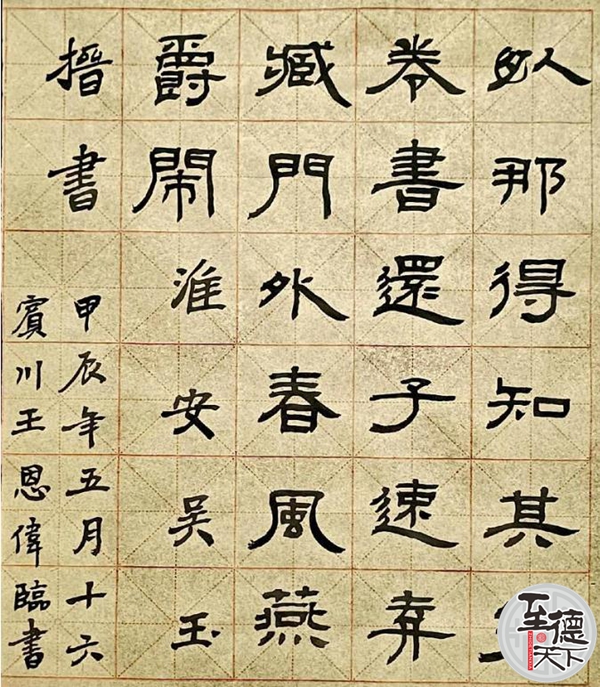 臥那得知其
卷書還子速弆
臧門外春風燕
爵鬧淮安吳玉
搢書
甲辰年五月十六
賓川王恩偉臨書
至德天下